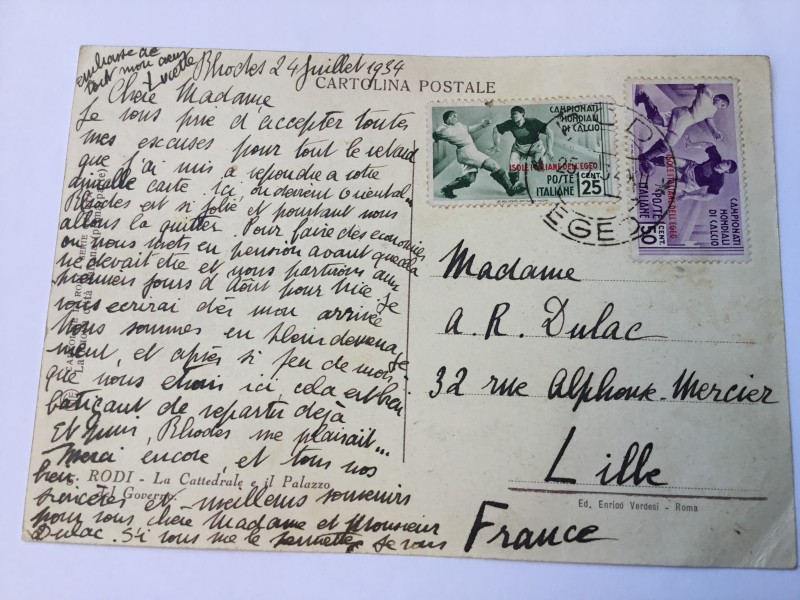 embrasse de
tout mon cœur
Lucette
Rhodes 24 Juillet 1934
CARTOLINA POSTALE
Chère Madame
Je vous prie d'accepter toutes
mes excuses pour tout le retard
que j'ai mis à répondre à votre
carte. Ici, on devient oriental
Rhodes est si jolie et pourtant nous
allons la quitter. Pour faire des économies
on nous mets en pension avant que cela
ne devait être et nous partirons aux
premiers jours d'août pour Nice. Je
vous écrirai dès mon arrivée
Nous sommes en plein déménage-
ment, et après si peu de mois
que nous étions ici, cela est bien
de repartir déjà
Et puis, Rhodes me plaisait...
Merci encore, et tous nos
bien
RODI - La Cattedrale e il Palazzo
del Governo
sincères et meilleurs souvenirs
pour vous, chère Madame et Monsieur
Dulac. Si vous me le permettez je vous
CAMPIONATI
MONDIALI
DI CALCIO
ISOLE ITALIANE DELL'EGEO
POSTE
ITALIANE
25 CENT.
CAMPIONATI
MONDIALI
DI CALCIO
ISOLE ITALIANE DELL'EGEO
POSTE
ITALIANE
50 CENT.
EGEO
Madame
A. R. Dulac
32 rue Alphonse-Mercier
Lille
France
Ed. Enrico Verdesi - Roma